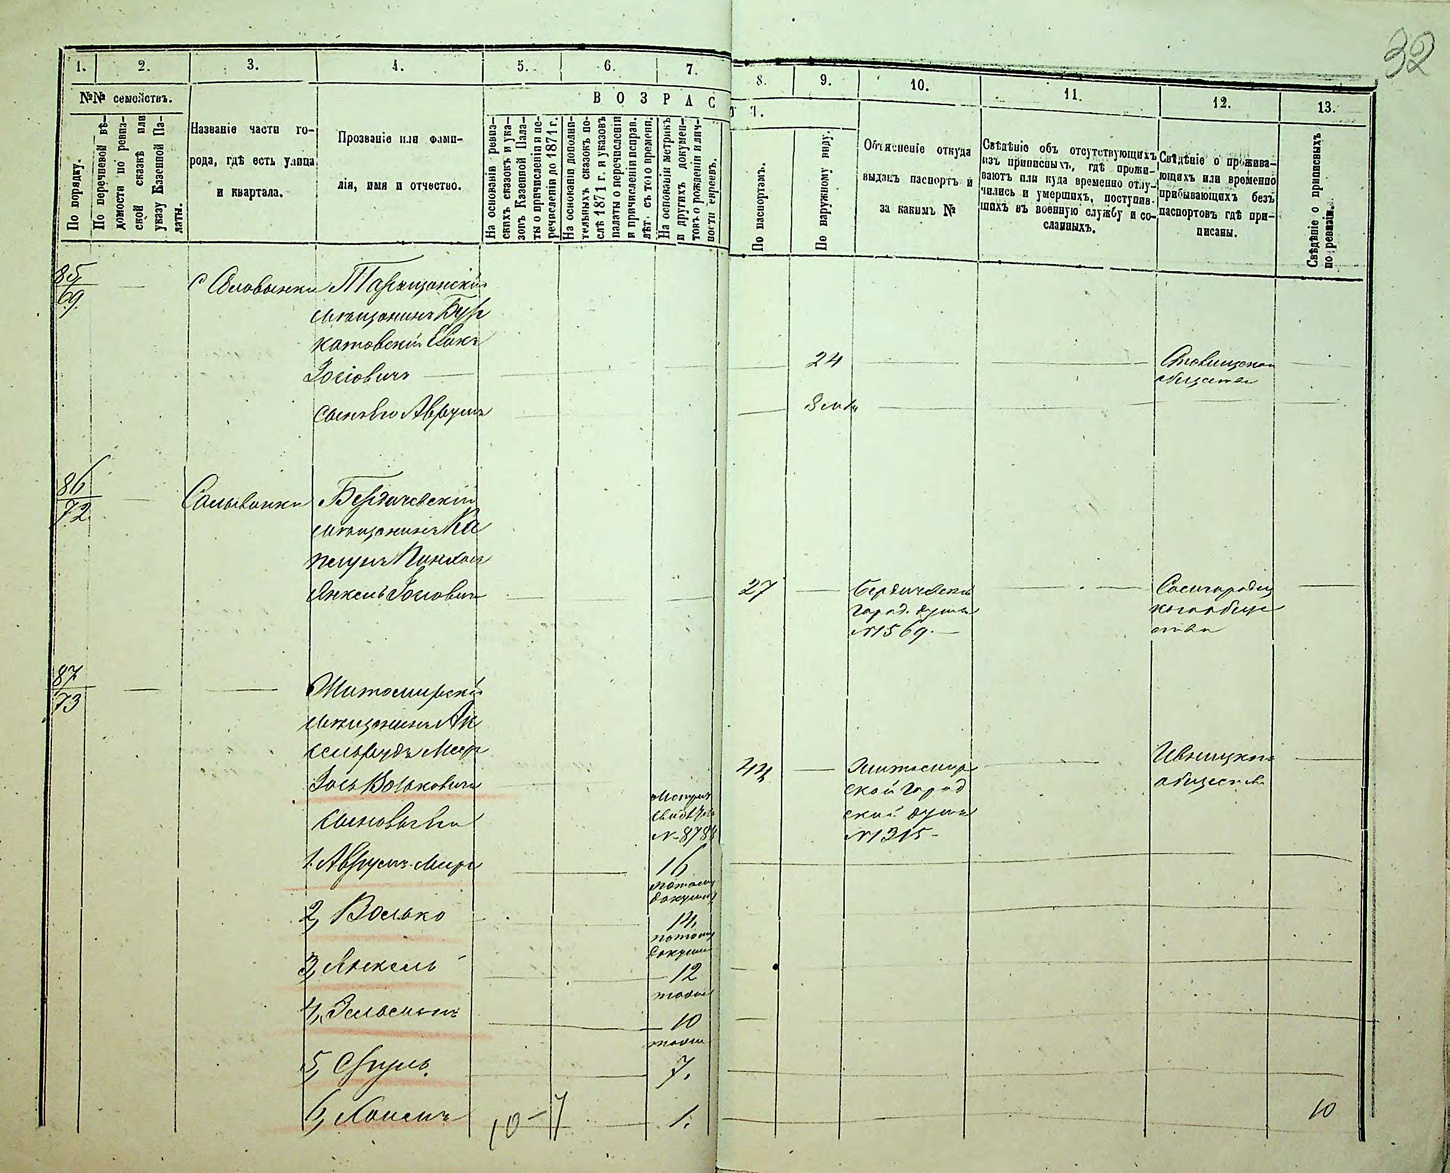 32
1. 2. 3. 4. 5. 6. 7. 8. 9. 10. 11. 12. 13.
№№ семействъ.
По порядку.
По перечневой вѣ-
домости по ревиз-
ской сказкѣ или
указу Казенной Па-
латы.
Названіе части го-
рода, гдѣ есть улица
и квартала.
Прозваніе или фами-
лія, имя и отчество.
ВОЗРАСТ.
На основаніи ревиз-
скихъ сказокъ и ука-
зовъ Казенной Пала-
ты о причисленіи и пе-
речисленіи до 1871 г.
На основаніи дополни-
тельныхъ сказокъ по-
слѣ 1871 г. и указовъ
палаты о перечисленіи
и причисленіи исправ.
лѣт. съ того времени.
На основаніи метрикъ
и другихъ докумен-
товъ о рожденіи и лич-
ности евреевъ.
По паспортамъ.
По наружному виду.
Объясненіе откуда
выданъ паспортъ и
за какимъ №
Свѣдѣніе об отсутствующихъ
изъ приписныхъ, гдѣ прожи-
ваютъ или куда временно отлу-
чились и умершихъ, поступив-
шихъ въ военную службу и со-
сланныхъ.
Свѣдѣніе о прожива-
ющихъ или временно
прибывающихъ безъ
паспортовъ гдѣ при-
писаны.
Свѣдѣніе о приписныхъ
по ревизіи.
85
69
Таращанскій
мѣщанинъ Бур
катовскій
Іосіовичъ
24
Ставищскаго
общества
сынъ его Аврумъ
86
72
Бердичевскій
мѣщанинъ Ка
Пинхас
Янкель Іосіовичъ
27
Бердичевской
город. думы
№ 1569.
общес
тва
87
73
Житомирскій
мѣщанинъ Ак
сельрудъ Меер
Іось Вольковичъ
44
Житомир
ской город
ской думы
№ 1315
Ивницкаго
общества
Сыновья его
№ 878
1, Аврумъ-Меер
16
2, Волько
14,
3, Янкель
12
4, Зельманъ
10
5, Сруль.
7,
6, Хаимъ
1.
10-7
10